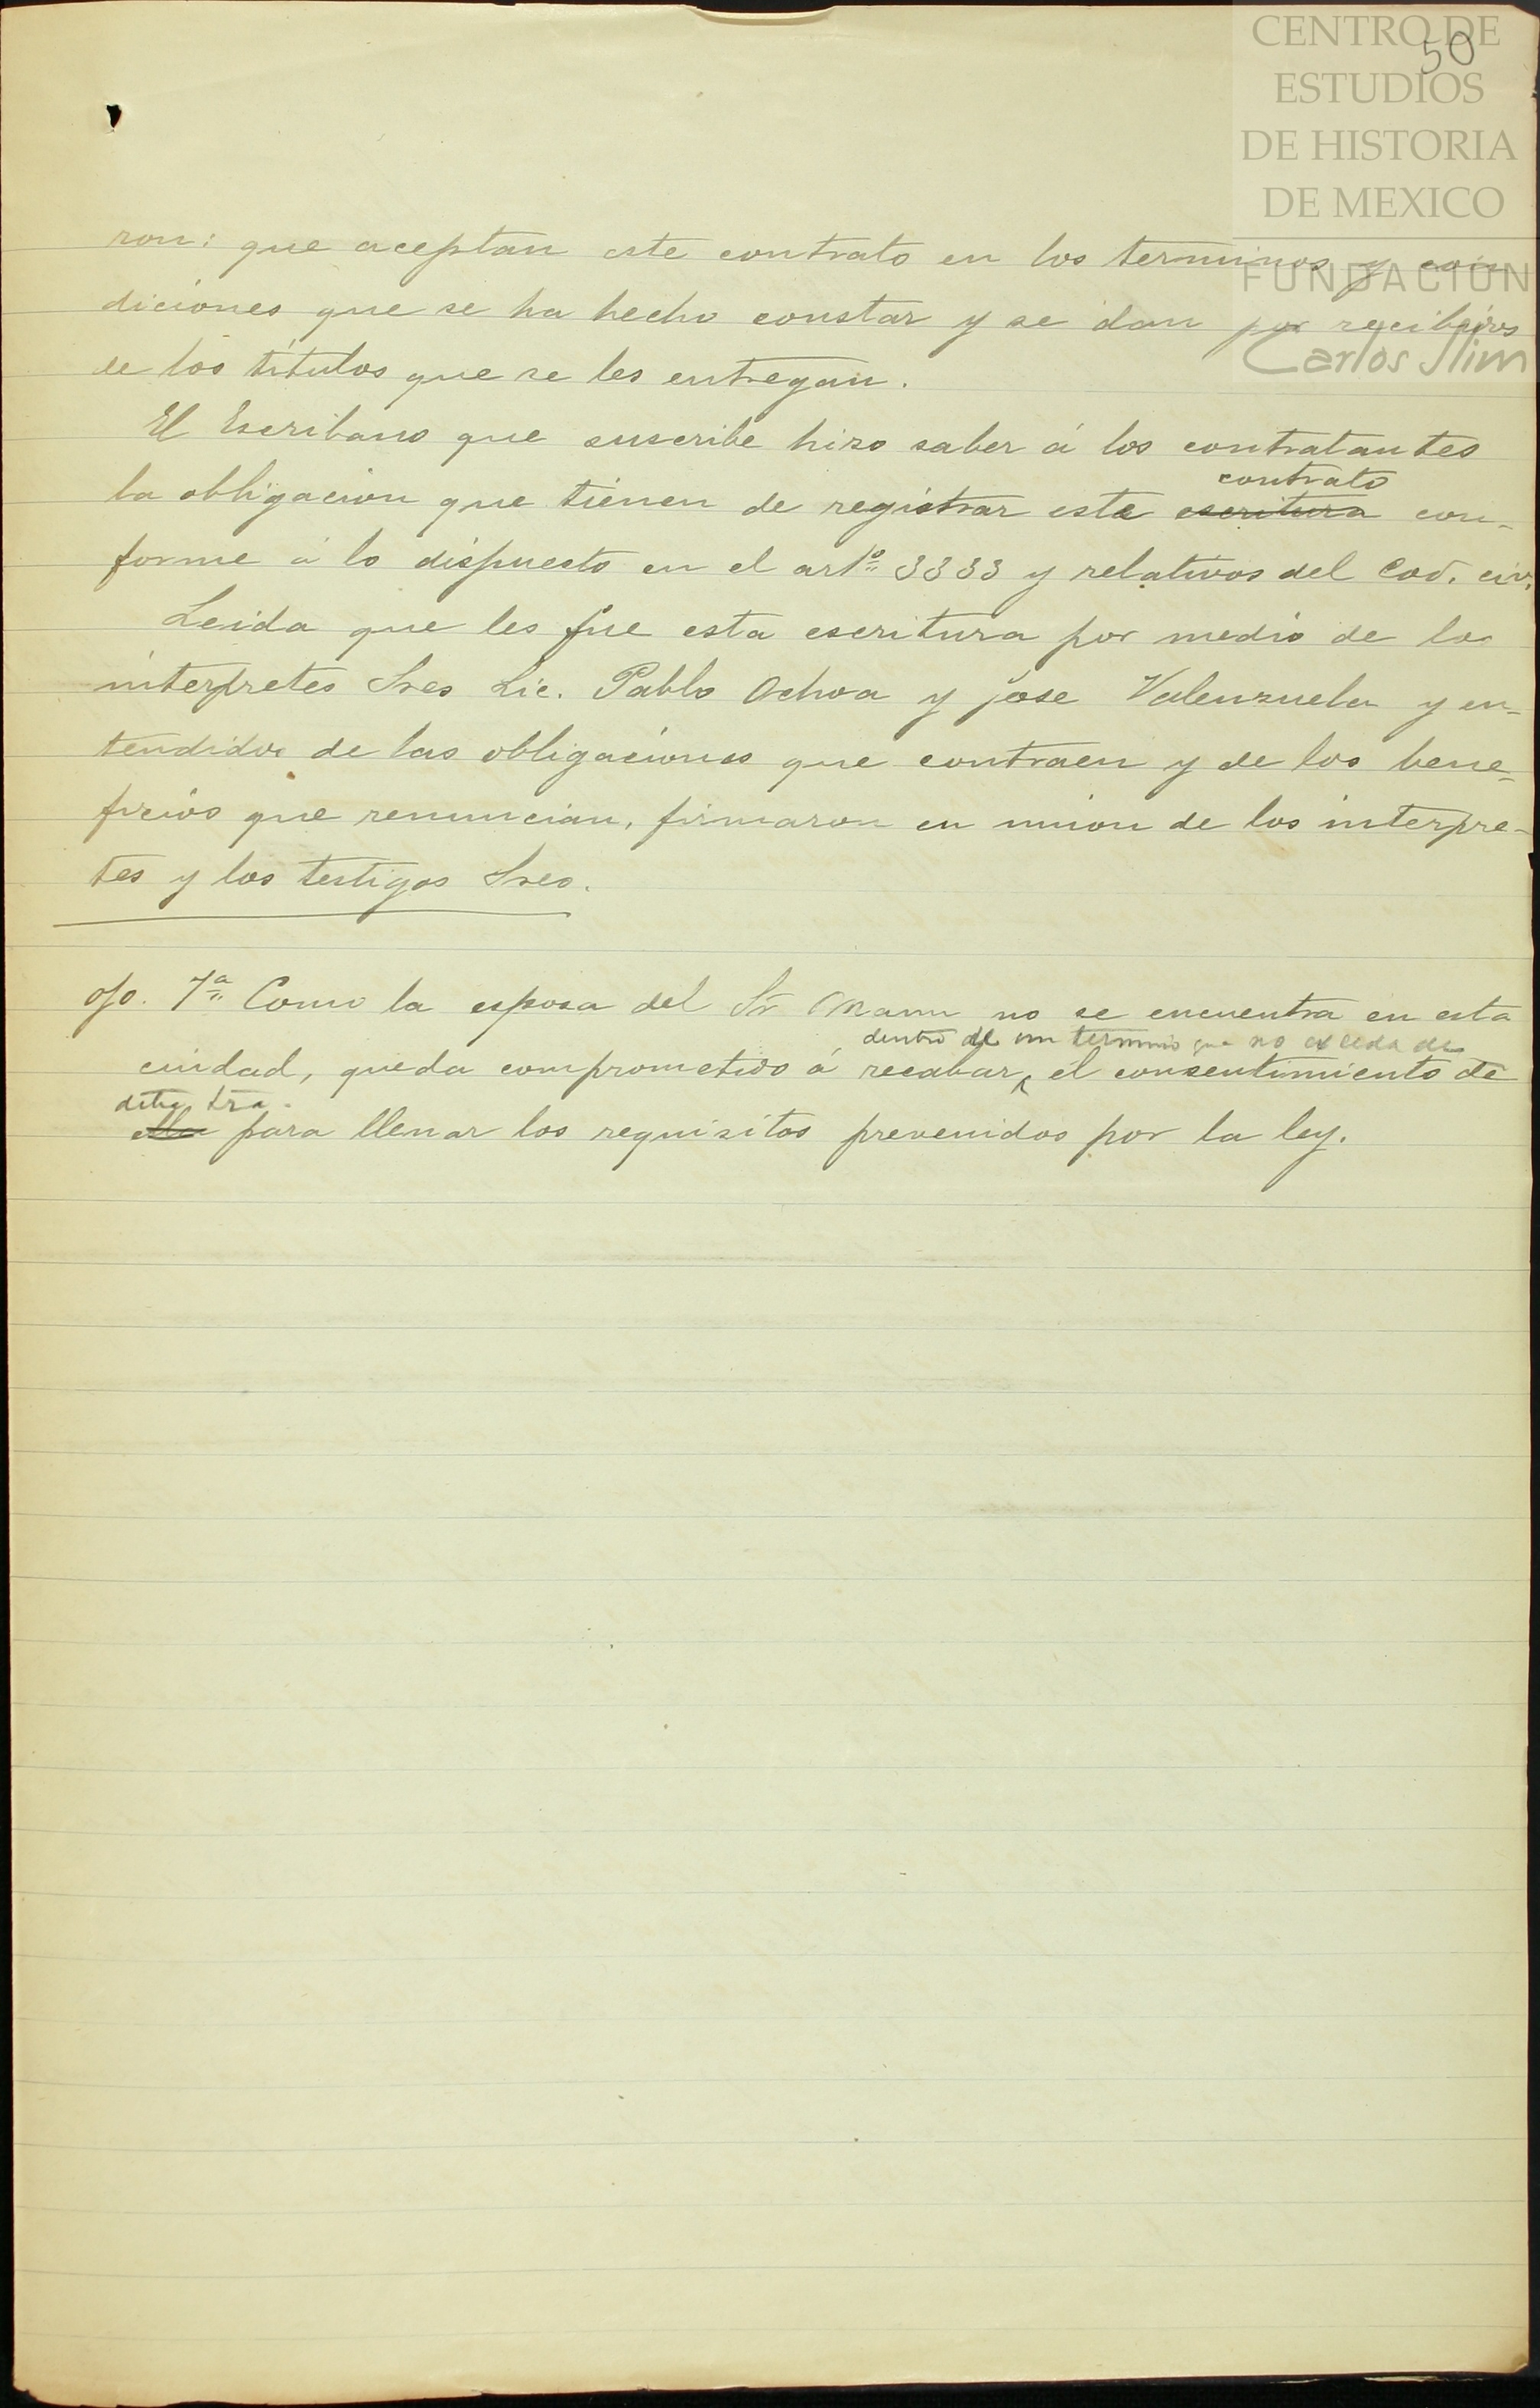 CENTRO DE
50
ESTUDIOS
DE HISTORIA
DE MEXICO
FUNDACION
Carlos Slim
ron: que aceptan este contrato en los terminos y con
diciones que se ha hecho constar y se dan por recibidos
de los titulos que se les entregan.
El Escribano que suscribe hizo saber á los contratantes
contrato
la obligacion que tienen de registrar este escritura con-
forme á lo dispuesto en el artº 3333 y relativos del Cod. civ.
Leida que les fue esta escritura por medio de los
interpretes Sres Lic. Pablo Ochoa y Jose Valenzuela y en-
tendidos de las obligaciones que contraen y de los bene-
ficios que renuncian, firmaron en union de los interpre-
tes y los testigos Sres.
ojo. 7ª Como la esposa del Sr Mann no se encuentra en esta
dentro de un termino que no exceda de
ciudad, queda comprometido á recabar el consentimiento de
dcha Sra.
ella para llenar los requisitos prevenidos por la ley.